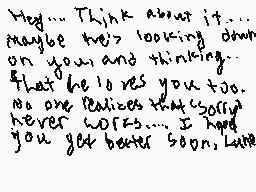 Hey.... Think about it....
Maybe he's looking down
on you, and thinking..
that he loves you too.
No one realizes that "sorry"
never works.... I hope
you get better soon,